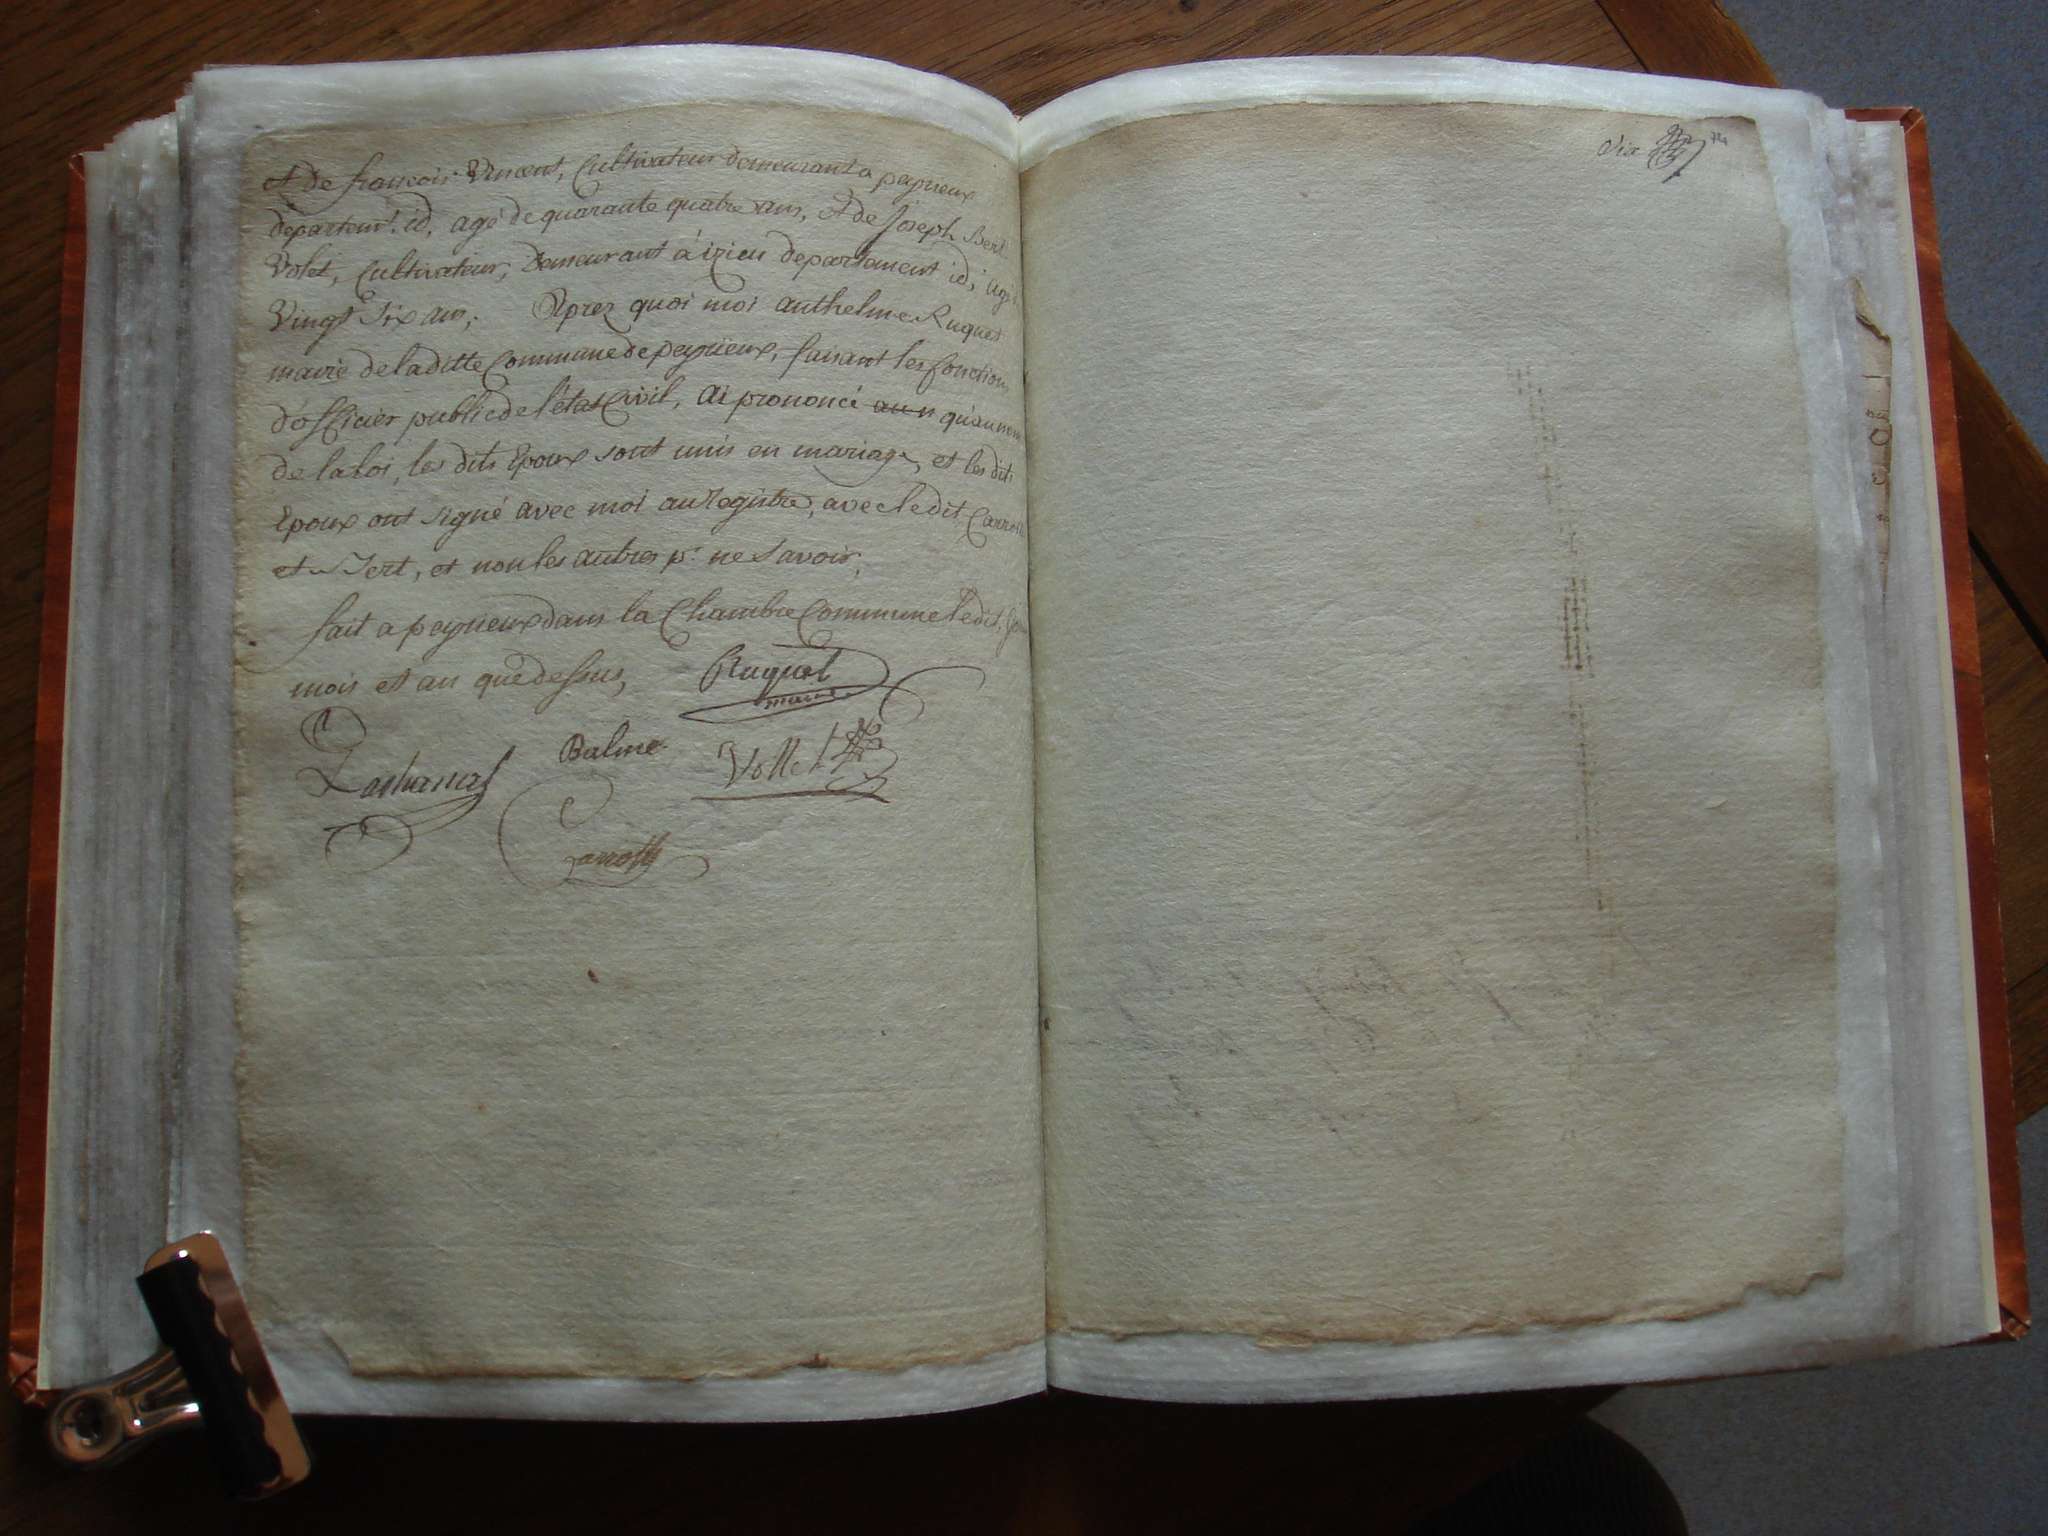 et de françois Vincent, Cultivateur demeurant a peyrieux
departemt. id, agé de quarante quatre ans, et de Joseph Bert
Volet, Cultivateur, Demeurant à izieu departement id, agé
Vingt Six ans; Aprez quoi moi anthelme Ruquet
maire de laditte Commune de peyrieux, faisant les fonctions
d'officier public de l'état Civil, Ai prononcé au n qu'au nom
de la loi, les dits Epoux sont unis en mariage, et les dits
Epoux ont signé avec moi au registre, avec ledit
et , et non les autres pr. ne Savoir,
fait a peyrieux dans la Chambre Commune ledit,
mois et an que dessus,
Ruquet
maire
Balme
Vollet
dix